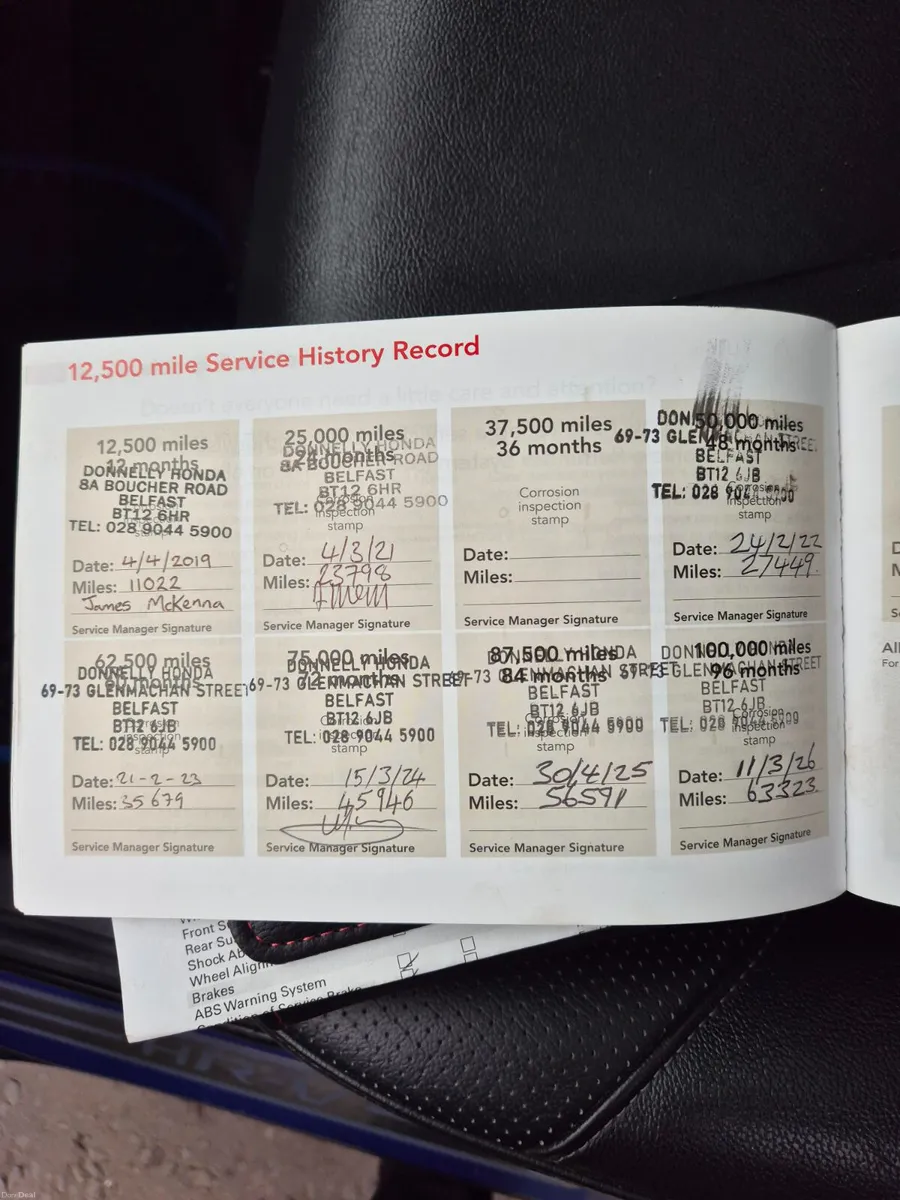 12,500 mile Service History Record
12,500 miles
12 months
DONNELLY HONDA
8A BOUCHER ROAD
BELFAST
BT12 6HR
TEL: 028 9044 5900
stamp
Date: 4/4/2019
Miles: 11022
James McKenna
Service Manager Signature
25,000 miles
DONNELLY HONDA
8A BOUCHER ROAD
BELFAST
BT12 6HR
Corrosion
TEL: 028 9044 5900
inspection
stamp
Date: 4/3/21
Miles: 23798
Service Manager Signature
37,500 miles
36 months
Corrosion
inspection
stamp
Date:
Miles:
Service Manager Signature
50,000 miles
48 months
69-73 GLENMACHAN STREET
BELFAST
BT12 6JB
Corrosion
TEL: 028 9044 5900
inspection
stamp
Date: 24/2/22
Miles: 27449
Service Manager Signature
62,500 miles
DONNELLY HONDA
69-73 GLENMACHAN STREET
BELFAST
BT12 6JB
Corrosion
TEL: 028 9044 5900
stamp
Date: 21-2-23
Miles: 35679
Service Manager Signature
75,000 miles
DONNELLY HONDA
72 months
69-73 GLENMACHAN STREET
BELFAST
BT12 6JB
TEL: 028 9044 5900
stamp
Date: 15/3/24
Miles: 45946
Service Manager Signature
87,500 miles
DONNELLY HONDA
69-73 GLENMACHAN STREET
84 months
BELFAST
BT12 6JB
Corrosion
TEL: 028 9044 5900
inspection
stamp
Date: 30/4/25
Miles: 56591
Service Manager Signature
100,000 miles
DONNELLY HONDA
69-73 GLENMACHAN STREET
96 months
BELFAST
BT12 6JB
Corrosion
TEL: 028 9044 5900
inspection
stamp
Date: 11/3/26
Miles: 63323
Service Manager Signature
All
For
Front S
Rear Su
Shock Ab
Wheel Align
Brakes
ABS Warning System
Condition of Service Brake
DoneDeal